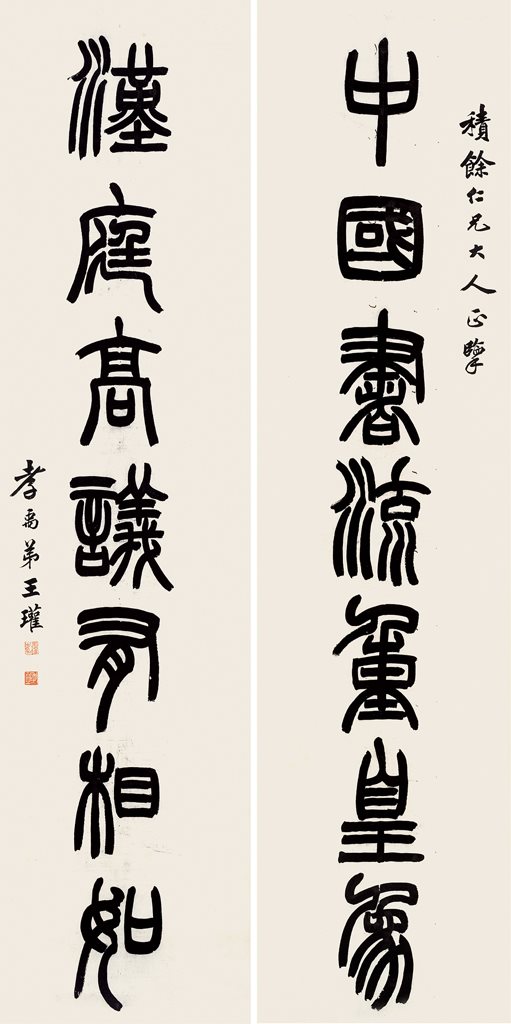 積餘仁兄大人正擥
中國書流重皇象
漢庭高議有相如
孝禹弟王瓘